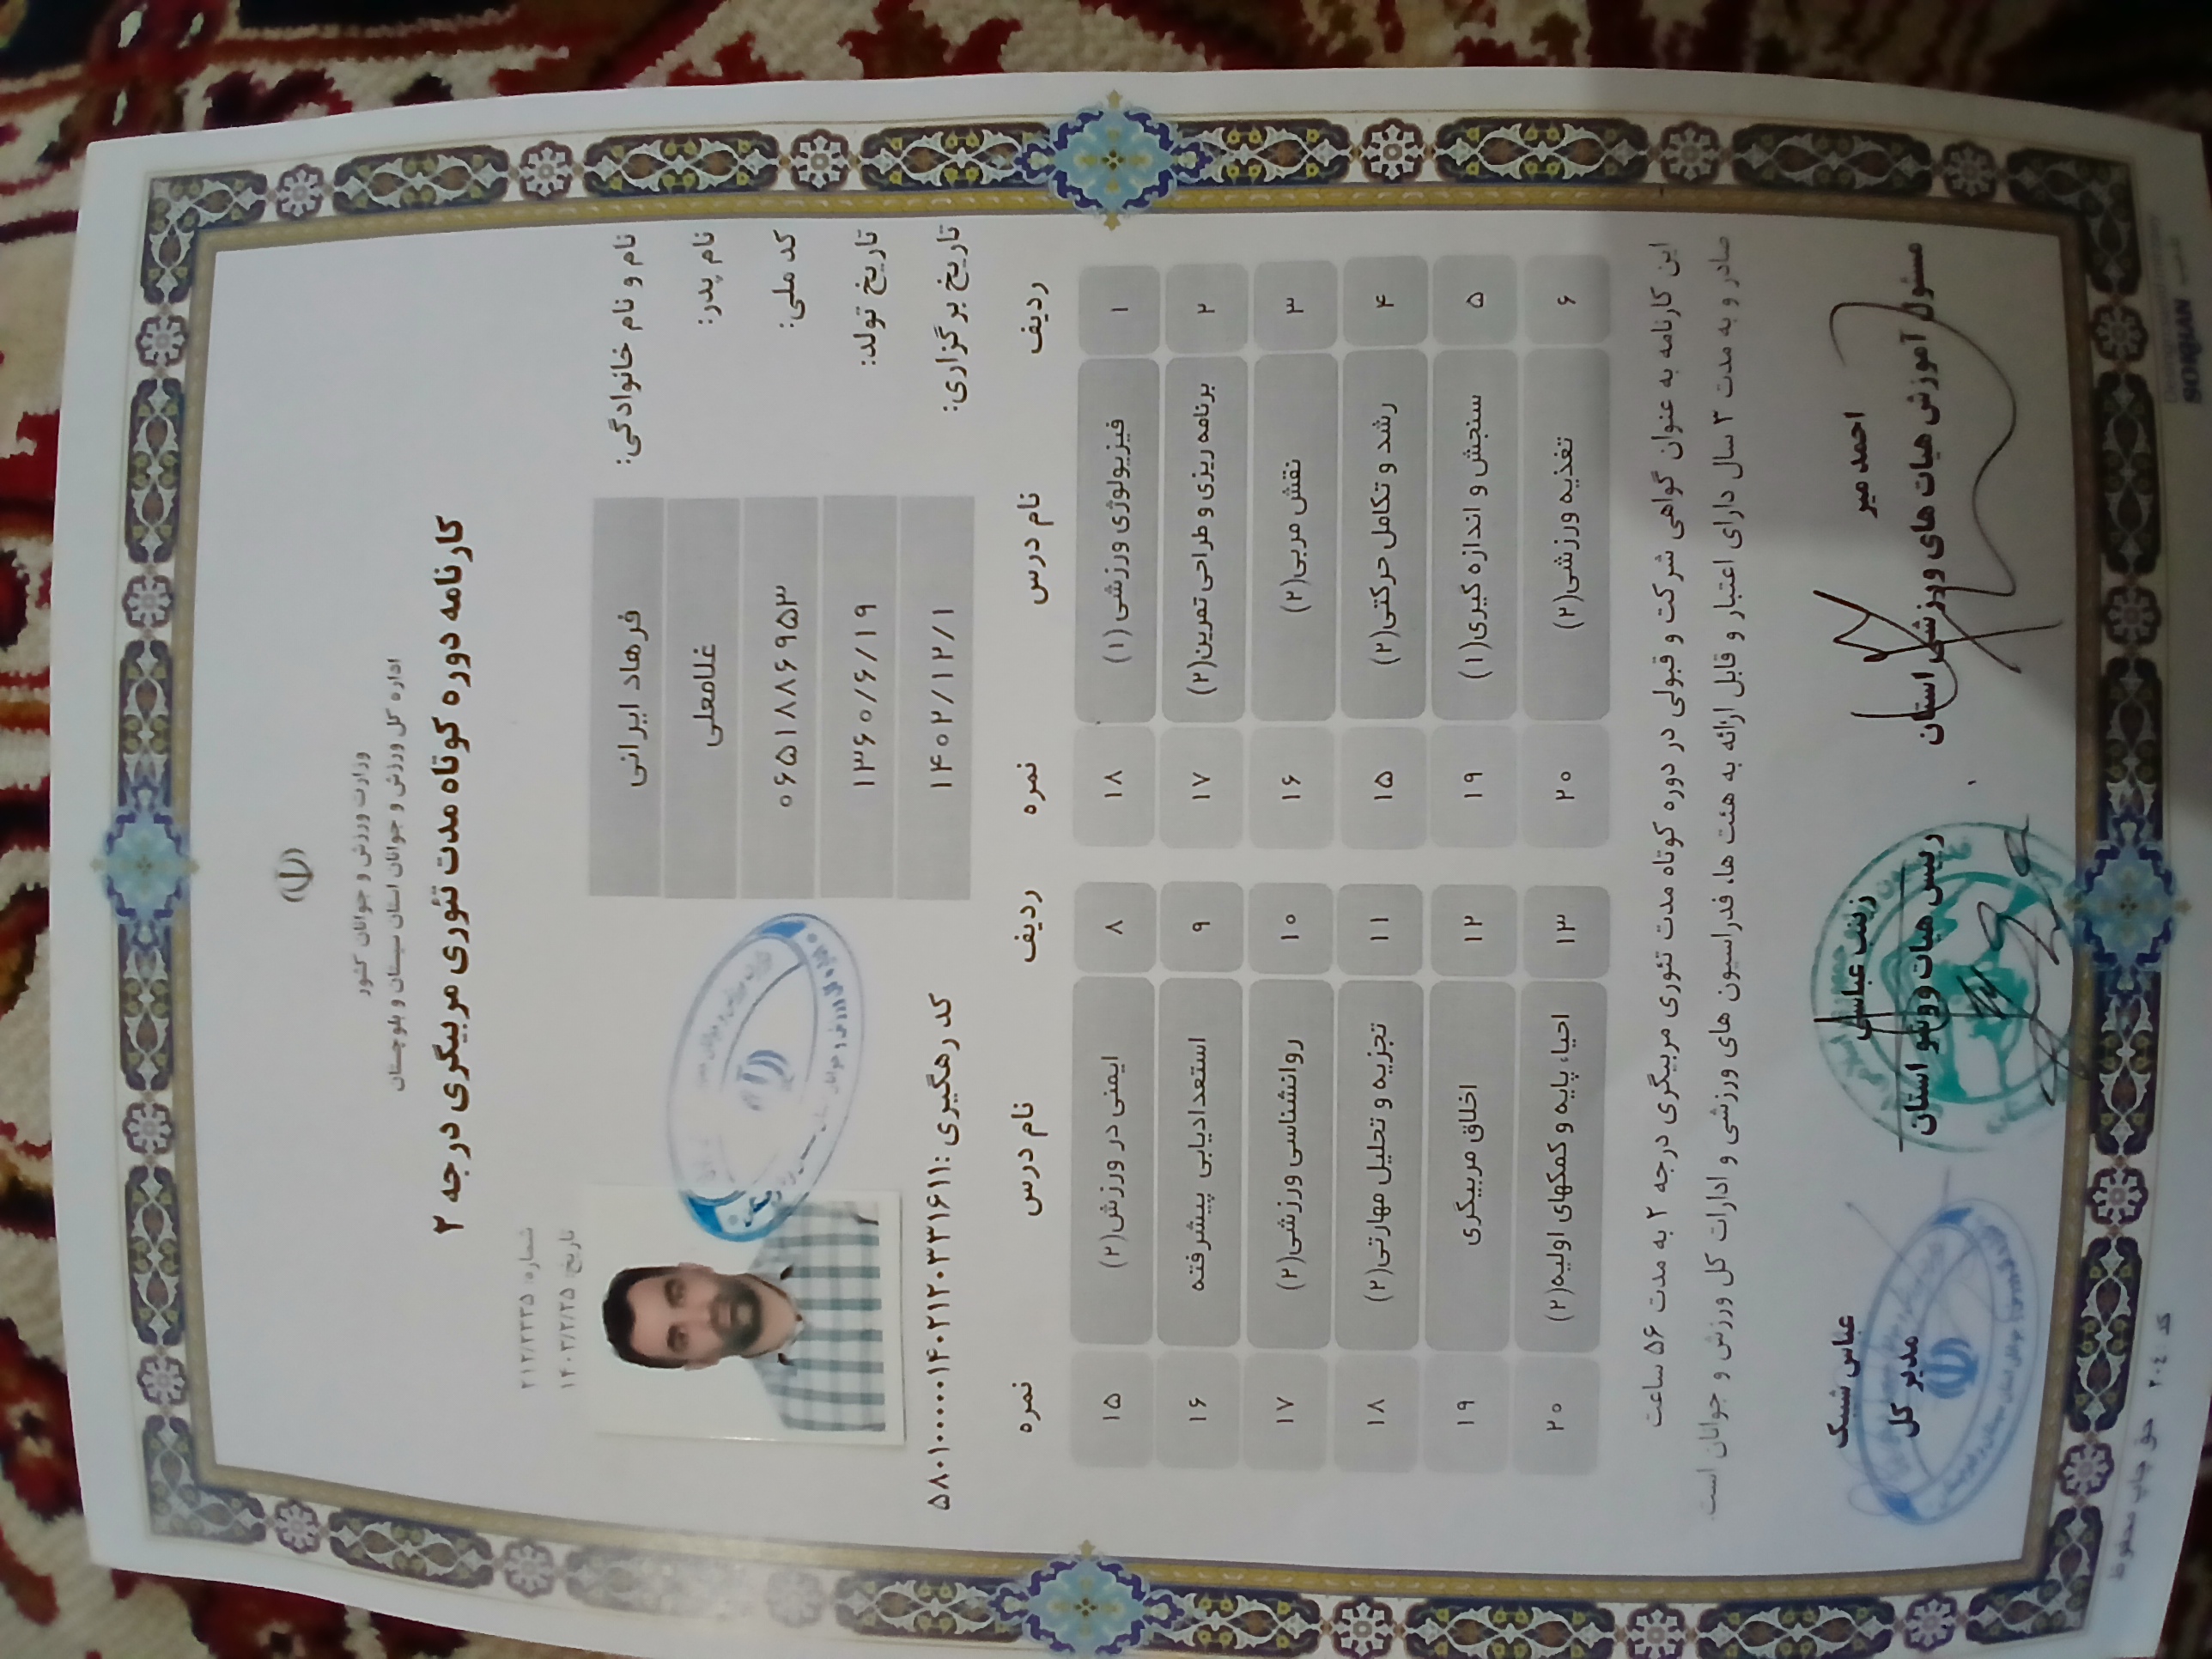 وزارت ورزش و جوانان کشور
اداره کل ورزش و جوانان استان سیستان و بلوچستان
کارنامه دوره کوتاه مدت تئوری مربیگری درجه ۲
شماره: ۲۱۲/۲۳۳۵
تاریخ: ۱۴۰۳/۲/۲۵
نام و نام خانوادگی: فرهاد ایرانی
نام پدر: غلامعلی
کد ملی: ۰۶۵۱۸۸۶۹۵۳
تاریخ تولد: ۱۳۶۰/۶/۱۹
تاریخ برگزاری: ۱۴۰۲/۱۲/۱
کد رهگیری: ۵۸۰۱۰۰۰۰۰۱۴۰۲۱۲۰۳۳۱۶۱۱
ردیف نام درس نمره ردیف نام درس نمره
۱ فیزیولوژی ورزشی (۱) ۱۸ ۸ ایمنی در ورزش(۲) ۱۵
۲ برنامه ریزی و طراحی تمرین(۲) ۱۷ ۹ استعدادیابی پیشرفته ۱۶
۳ نقش مربی(۲) ۱۶ ۱۰ روانشناسی ورزشی(۲) ۱۷
۴ رشد و تکامل حرکتی(۲) ۱۵ ۱۱ تجزیه و تحلیل مهارتی(۲) ۱۸
۵ سنجش و اندازه گیری(۱) ۱۹ ۱۲ اخلاق مربیگری ۱۹
۶ تغذیه ورزشی(۲) ۲۰ ۱۳ احیا، پایه و کمکهای اولیه(۲) ۲۰
این کارنامه به عنوان گواهی شرکت و قبولی در دوره کوتاه مدت تئوری مربیگری درجه ۲ به مدت ۵۶ ساعت
صادر و به مدت ۳ سال دارای اعتبار و قابل ارائه به هئت ها، فدراسیون های ورزشی و ادارات کل ورزش و جوانان است.
احمد میر
مسئول آموزش هیات های ورزشی استان
زینت عباسی
رییس هیات ووشو استان
عباس شیبک
مدیر کل
کد ۲۰۴ حق چاپ محفوظ